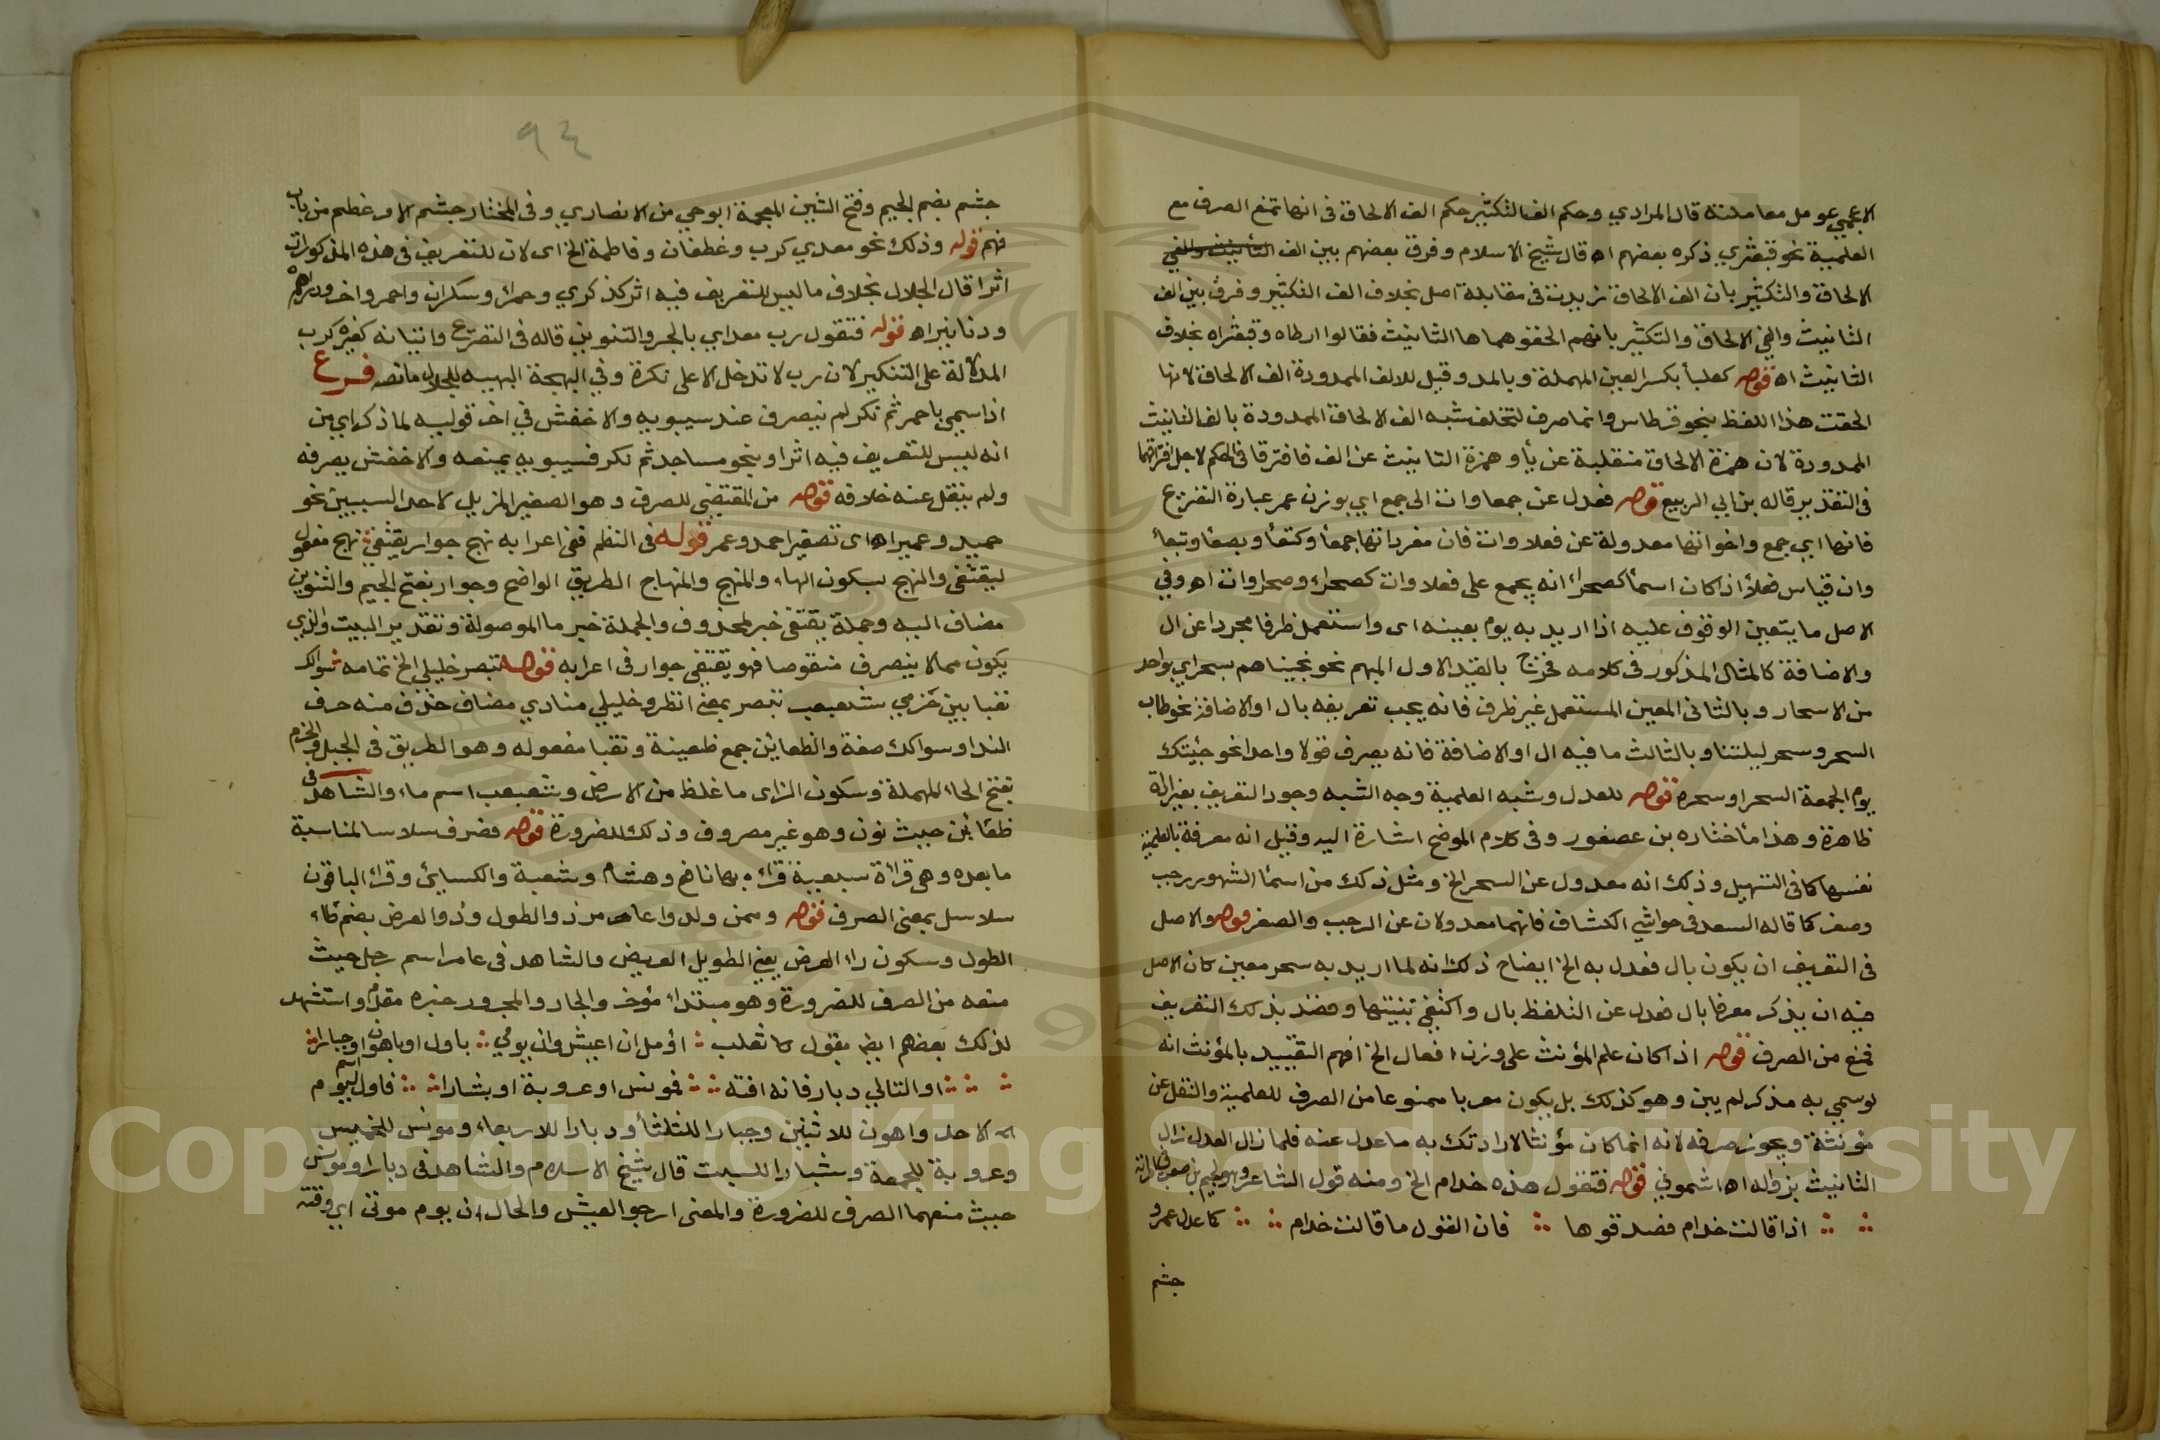 الاعجمي عومل معاملته قال المرادي وحكم الف التكثير حكم الف الالحاق في انها تمنع الصرف مع
العلمية نحو قبعثري ذكره بعضهم اه قال شيخ الاسلام وفرق بعضهم بين الف التأنيث والفي
الالحاق والتكثير بان الف الالحاق زيدت في مقابلة اصل بخلاف الف التكثير وفرق بين الف
التانيث والفي الالحاق والتكثير بانهم الحقوهما ها التانيث فقالوا ارطاه وقبعثراه بخلاف
التانيث اه قوله كعلبأ بكسر العين المهملة وبالمد وقبل للالف الممدودة الف الالحاق لانها
الحقت هذا اللفظ بنحو قرطاس وانما صرف لتخلف شبه الف الالحاق الممدودة بالف التانيث
الممدودة لان همزة الالحاق منقلبة عن يأ وهمزة التانيث عن الف فافترقا في الحكم لاجل افتراقهما
في التقدير قاله بن ابي الربيع قوله فعدل عن جمعاوات الى جمع اي بوزن عمر عبارة التصريح
فانها اي جمع واخواتها معدولة عن فعلاوات فان مفرداتها جمعأ وكتعأ وبصعأ وتبعأ
وان قياس فعلأ اذا كان اسمأ كصحرأ انه يجمع على فعلاوات كصحراء وصحراوات اه وفي
الاصل ما يتعين الوقوف عليه اذا اريد به يوم بعينه اى واستعمل ظرفا مجردا عن ال
والاضافة كالمثال المذكور في كلامه فخرج بالقيد الاول المبهم نحو نجيناهم بسحر اي بواحد
من الاسحار وبالثاني المعين المستعمل غير ظرف فانه يجب تعريفه بال او الاضافة نحو طاب
السحر وسحر ليلتنا وبالثالث ما فيه ال او الاضافة فانه يصرف قولا واحدا نحو جئيتك
يوم الجمعة السحر او سحره قوله للعدل وشبه العلمية وجه الشبه وجود التعريف بغير الة
ظاهرة وهذا ما ختاره بن عصفور وفي كلام الموضح اشارة اليه وقيل انه معرفة بالعلمية
نفسها كما في التسهيل وذلك انه معدول عن السحر الخ ومثل ذلك من اسمأ الشهور رجب
وصفر كما قاله السعد في حواشي الكشاف فانهما معدولان عن الرجب والصفر قوله والاصل
في التعريف ان يكون بال فعدل به الخ ايضاح ذلك انه لما اريد به سحر معين كان الاصل
فيه ان يذكر معرفا بال فعدل عن التلفظ بال واكتفي بنيتها وقصد بذلك التعريف
فمنع من الصرف قوله اذا كان علم المؤنث على وزن افعال الخ افهم التقييد بالمؤنث انه
لو سمي به مذكر لم يبن وهو كذلك بل يكون معربا ممنوعا من الصرف للعلمية والنقل عن
مؤنثه ويجوز صرفه لانه انما كان مؤنثا لارادتك به ما عدل عنه فلما زال العدل زال
التانيث بزواله اه اشموني قوله فتقول هذه حذام الخ ومنه قول الشاعر وهو لجيم بن صعب في امراته
اذا قالت حذام فصدقوها فان القول ما قالت حذام كما عدل عمرو
جشم
٩٤
جشم بضم الجيم وفتح الشين المعجمة ابو حي من الانصاري وفي المختار جشم الامر غطم من باب
فهم قوله وذلك نحو معدي كرب وغطفان وفاطمة الخ اى لان للتعريف في هذه المذكورات
اثرا قال الجلال بخلاف ما ليس للتعريف فيه اثر كذكري وحمراء وسكران واحمر واخر ودراهم
ودنانير اه قوله فتقول رب معدي بالجر والتنوين قاله في التصريح واتيانه كغيره كرب
المدلالة على التنكير لان رب لا تدخل الا على نكرة وفي البهجة البهيه للجلال ما نصه فرع
اذا سمي باحمر ثم نكر لم ينصرف عند سيبويه والاخفش في اخر قوليه لما ذكر اي من
انه ليس للتعريف فيه اثرا وبنحو مساجد ثم نكر فسيبويه يمنعه والاخفش يصرفه
ولم ينقل عنه خلافه قوله من المقتضي للصرف وهو الصغير المزيل لاحد السببين نحو
حميد وعمير اه اى تصغير احمد وعمر قوله في النظم ففي اعرابه نهج جوار يقتفي نهج مفعول
ليقتفي والنهج بسكون الهاء والمنهج والمنهاج الطريق الواضح وجوار بفتح الجيم والتنوين
مضاف اليه وجملة يقتفي خبر لمحذوف والجملة خبر ما الموصولة وتقدير البيت والذي
يكون مما لا ينصرف منقوصا فهو يقتفي جوار في اعرابه قوله تبصر خليلي الخ تمامه سوالك
نقبا بين حزمي شعبعب تبصر بمعنى انظر وخليلي منادي مضاف حذف منه حرف
الندا وسوالك صفة والظعاين جمع ظعينة ونقبا مفعوله وهو الطريق في الجبل والحزم
بفتح الحاء المهملة وسكون الزاى ما غلظ من الارض وشعبعب اسم ماء والشاهد في
ظعاين حيث نون وهو غير مصروف وذلك للضرورة قوله فصرف سلاسا لمناسبة
ما بعده وهي قرأة سبعية قرأ بها نافع وهشام وشعبة والكسائي وقرأ الباقون
سلاسل بمعنى الصرف قوله وممن ولدوا عامر ذو الطول وذو العرض بضم طاء
الطول وسكون راء العرض يعني الطويل العريض والشاهد في عامر اسم رجل حيث
منعه من الصرف للضرورة وهو مبتداء مؤخر والجار والمجرور خبره مقدم واستشهد
لذلك بعضهم ايضا بقول ثعلب اؤمل ان اعيش وان يومي باول او باهون او جبار
او التالي دبار فانه افته فمونس او عروبة او بشار فاول اسم ليوم
الاحد واهون للاثنين وجبارا للثلثأ ودبارا للاربعاء ومونس للخميس
وعروبة للجمعة وشبارا للسبت قال شيخ الاسلام والشاهد في دبار ومونس
حيث منعهما الصرف للضرورة والمعنى ارجو العيش والحال ان يوم موتي اي وقته
Copyright © King Saud University
1957